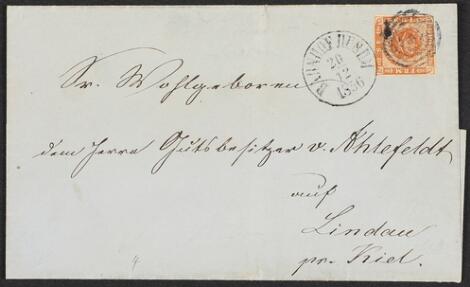 BAHNHOF
20
12
1856
Sr. Wohlgeboren
dem Herrn Gutsbesitzer v. Ahlefeldt
auf
Lindau
pr. Kiel.